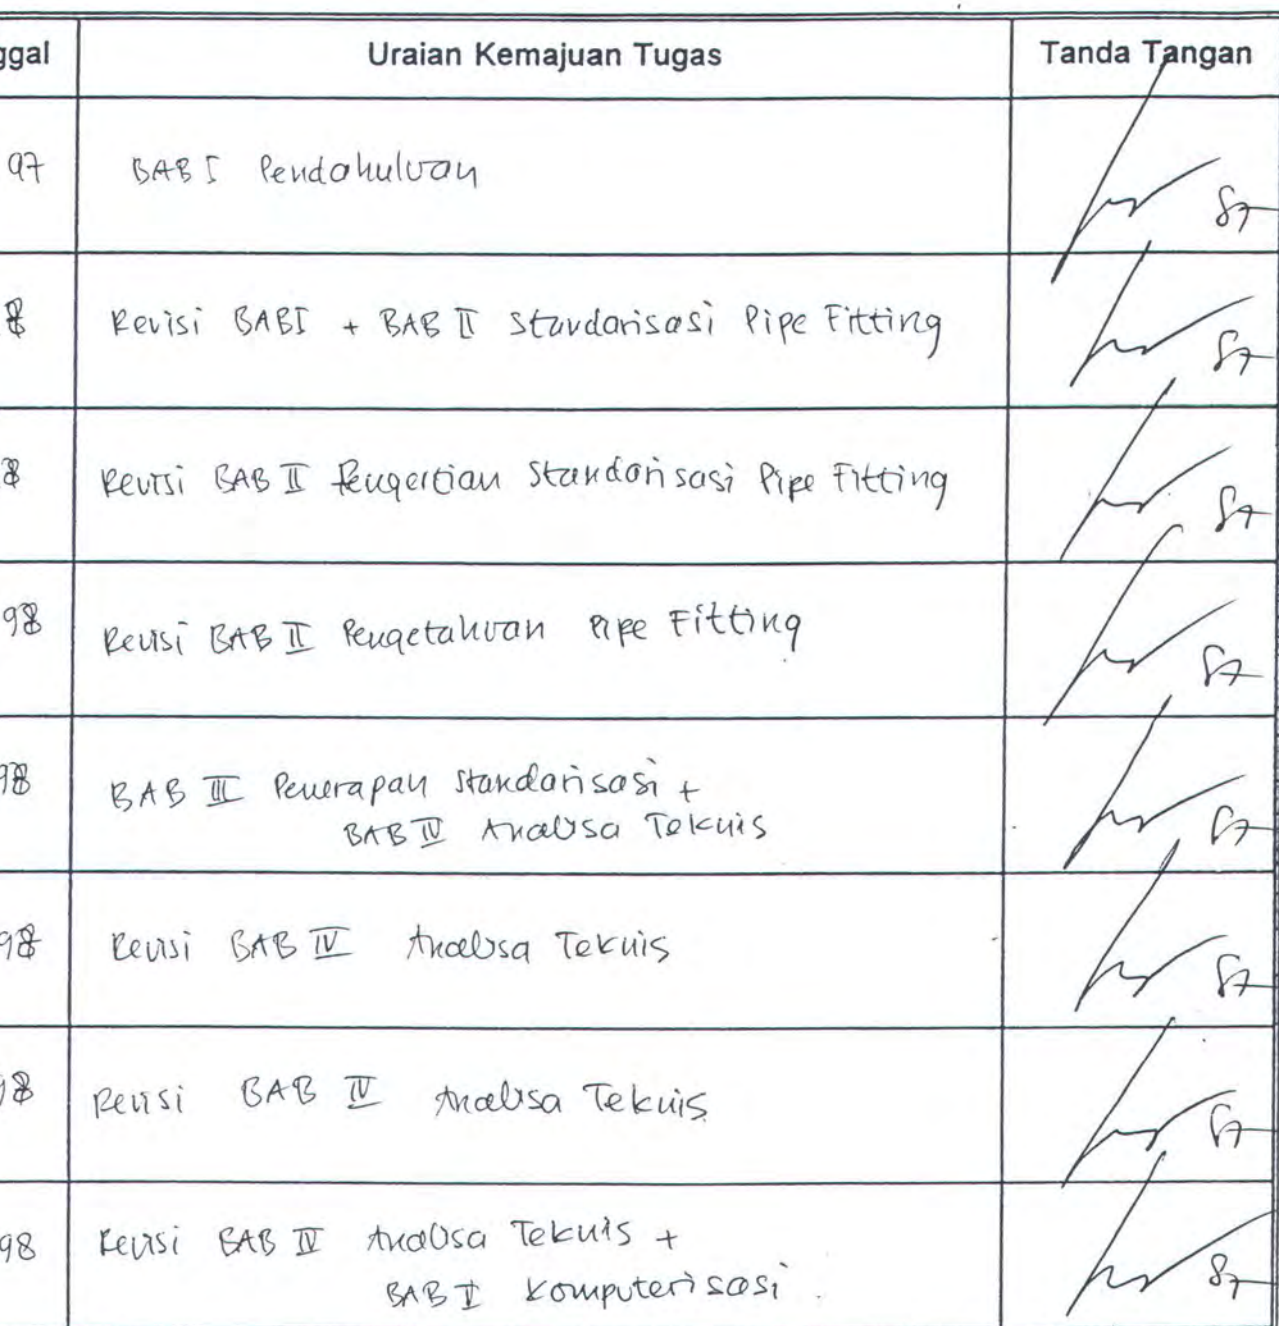 ggal Uraian Kemajuan Tugas Tanda Tangan
97 BAB I Pendahuluan
8 Revisi BAB I + BAB II Standarisasi Pipe Fitting
8 Revisi BAB II Pengertian Standarisasi Pipe Fitting
98 Revisi BAB II Pengetahuan Pipe Fitting
98 BAB III Penerapan Standarisasi +
BAB IV Analisa Teknis
98 Revisi BAB IV Analisa Teknis
98 Revisi BAB IV Analisa Teknis
98 Revisi BAB IV Analisa Teknis +
BAB V Komputerisasi